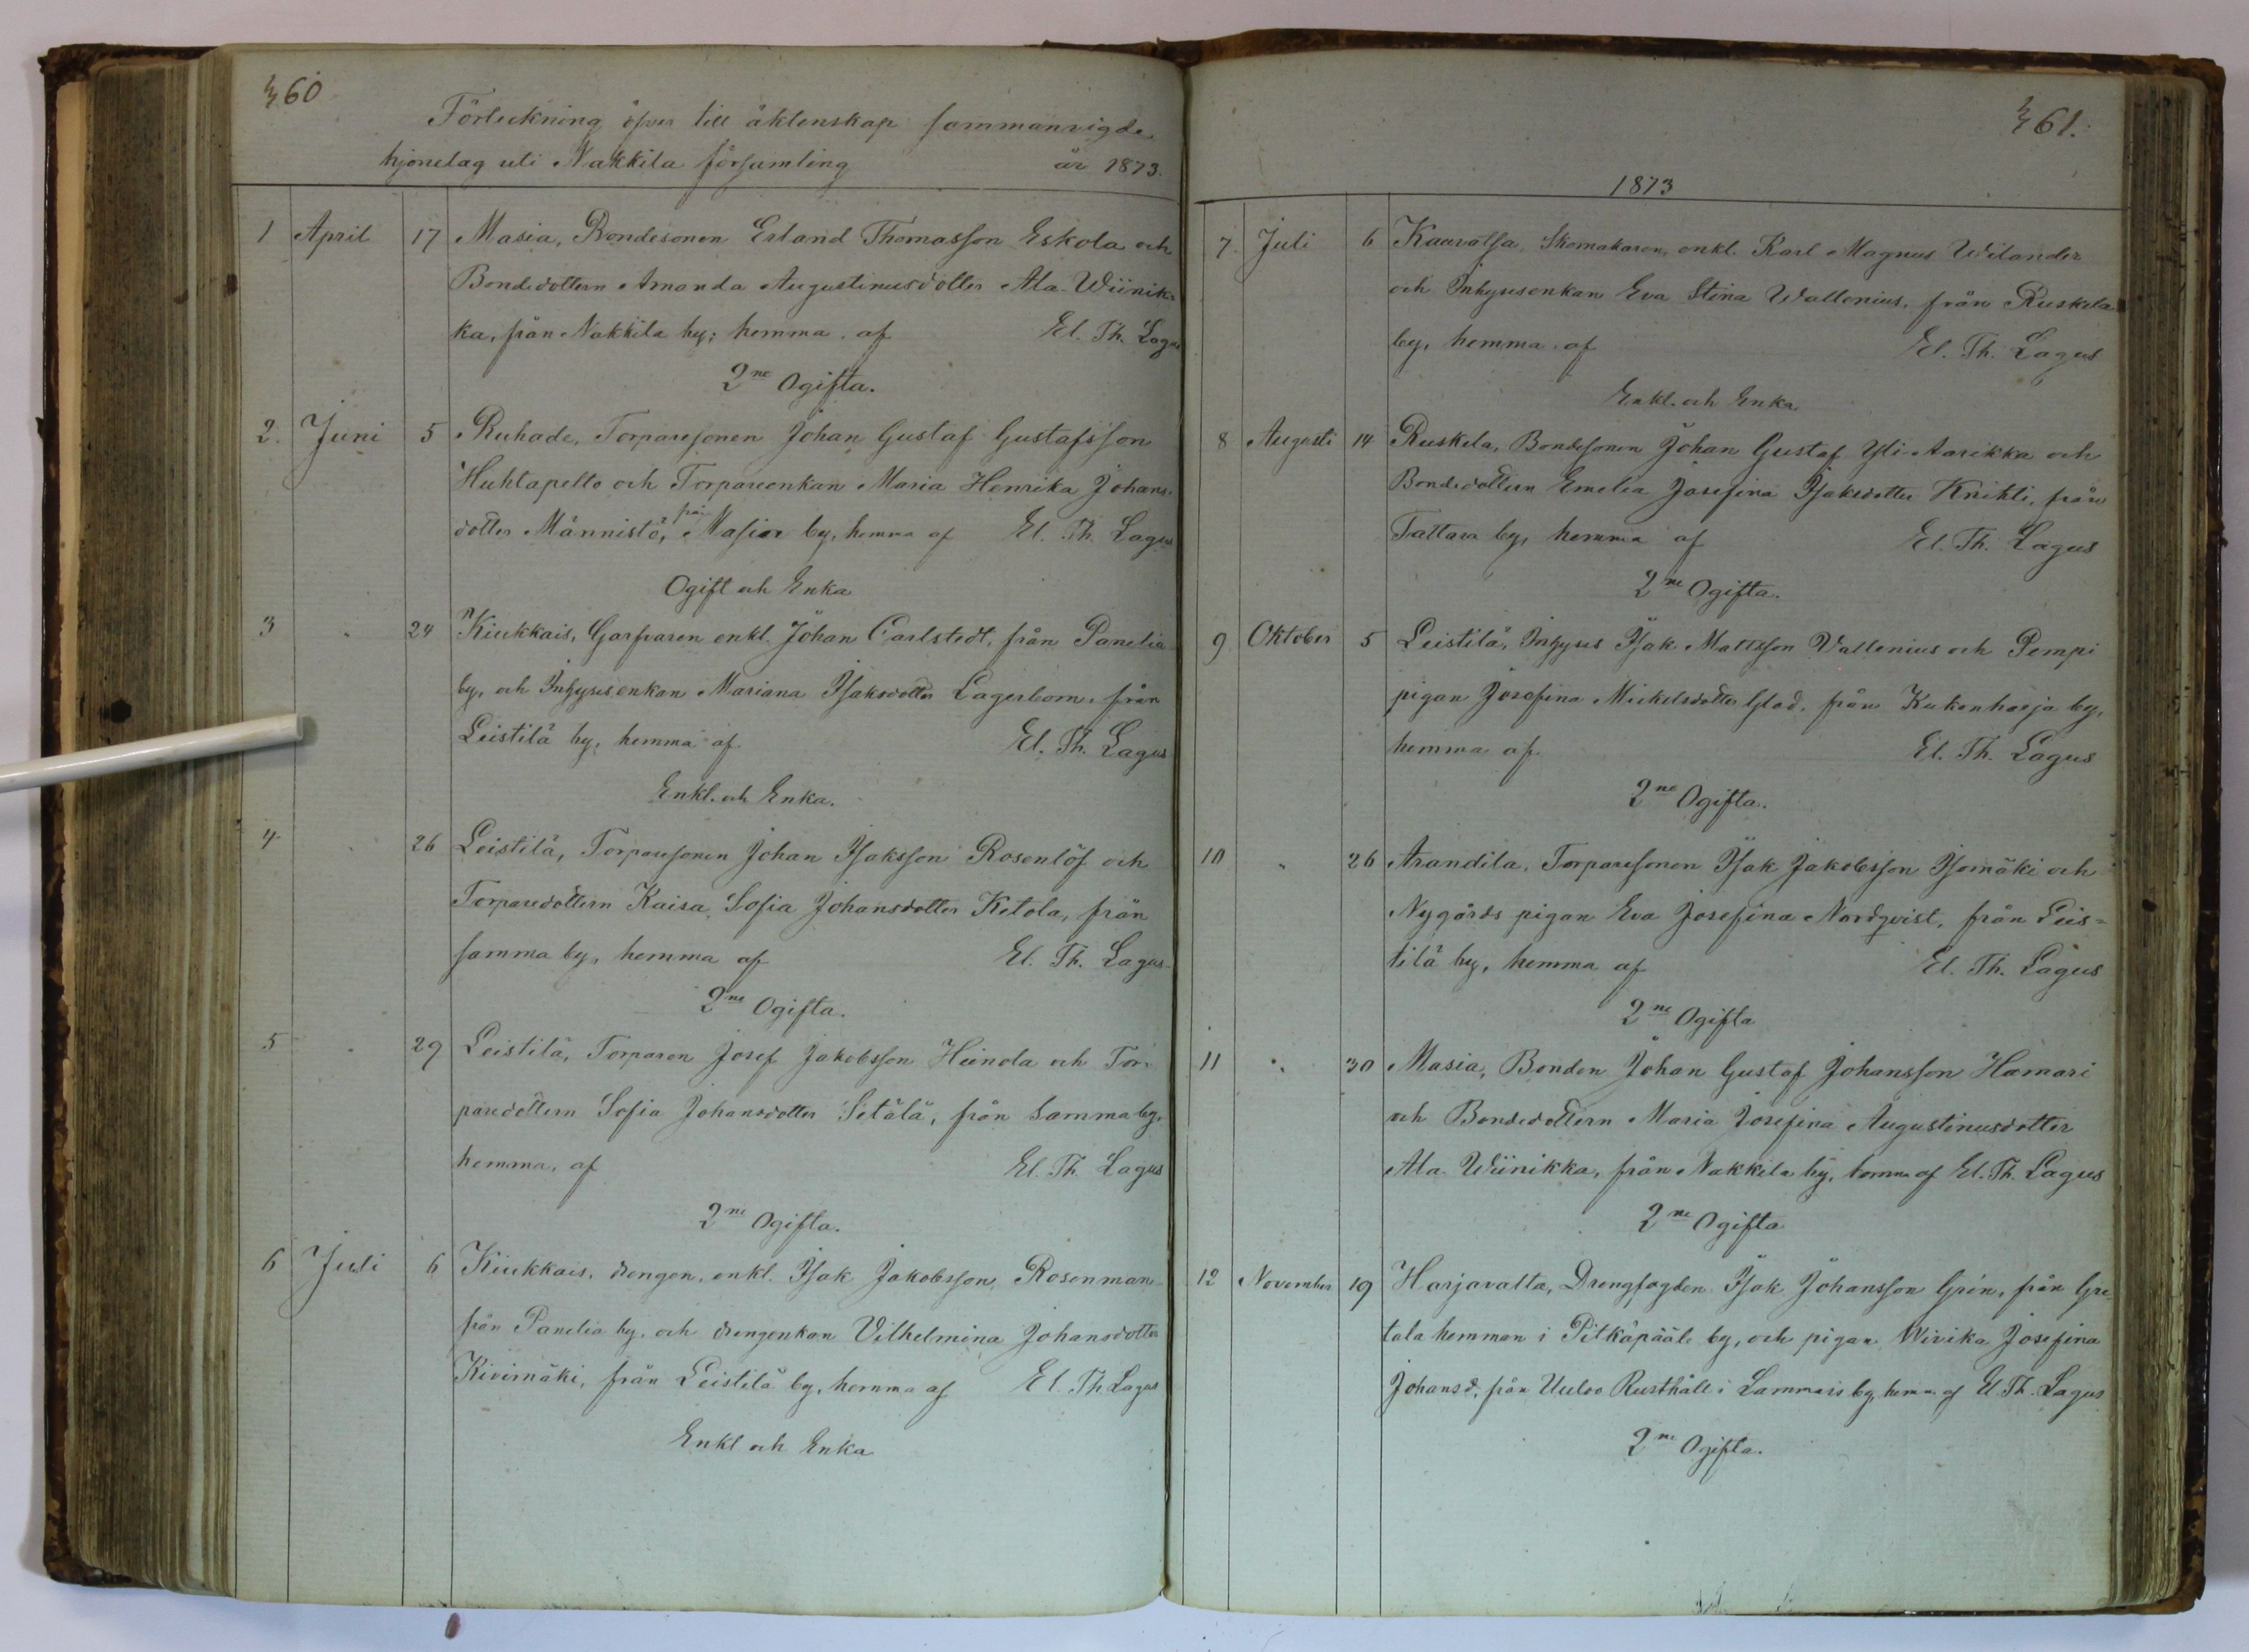 360
Förteckning öfver till äktenskap sammanvigde
hjonelag uti Nakkila församling år 1873.
1 April 17 Masia, Bondesonen Erland Thomasson Eskola och
Bondedottern Amanda Augustinusdotter Ala-Wiinik-
ka, från Nakkila by; hemma af El. Th. Lagus
2ne Ogifta.
2. Juni 5 Ruhade, Torparesonen Johan Gustaf Gustafsson
Huhtapelto och Torpareenkan Maria Henrika Johans-
dotter Männistö, från Masia by, hemma af El. Th. Lagus
Ogift och Enka
3 " 24 Kiukkais, Garfvaren enkl. Johan Carlstedt, från Panelia
by, och Inhysesenkan Mariana Isaksdotter Lagerbom, från
Leistilä by, hemma af El. Th. Lagus
Enkl. och Enka.
4 " 26 Leistilä, Torparesonen Johan Isaksson Rosenlöf och
Torparedottern Kaisa Sofia Johansdotter Ketola, från
samma by, hemma af El. Th. Lagus
2ne Ogifta.
5 " 29 Leistilä, Torparen Josef Jakobsson Heinola och Tor-
paredottern Sofia Johansdotter Setälä, från samma by,
hemma, af El. Th. Lagus
2ne Ogifta.
6 Juli 6 Kiukkais, drengen, enkl. Isak Jakobsson Rosenman
från Panelia by, och drengenkan Vilhelmina Johansdotter
Kivimäki, från Leistilä by, hemma af El. Th. Lagus
Enkl och Enka
361.
1873
7. Juli 6 Kaavalsa, Skomakaren, enkl. Karl Magnus Wilander
och Inhysesenkan Eva Stina Wallenius, från Ruskila
by, hemma af El. Th. Lagus
Enkl. och Enka
8 Augusti 14 Ruskila, Bondesonen Johan Gustaf Yli-Aarikka och
Bondedottern Emelia Josefina Isaksdotter Knihti, från
Tattara by, hemma af El. Th. Lagus
2ne Ogifta.
9 Oktober 5 Leistilä, Inhyses Isak Mattsson Vallenius och Pempi
pigan Josefina Mickelsdotter Glad, från Kukonharja by,
hemma af El. Th. Lagus
2ne Ogifta.
10 " 26 Arandila, Torparesonen Isak Jakobsson Isomäki och
Nygårds pigan Eva Josefina Nordqvist, från Leis=
tilä by, hemma af El. Th. Lagus
2ne Ogifta
11 " 30 Masia, Bonden Johan Gustaf Johansson Hamari
och Bondedottern Maria Josefina Augustinusdotter
Ala-Wiinikka, från Nakkila by, hemma af El. Th. Lagus
2ne Ogifta
12 November 19 Harjavalta, Drengfogden Isak Johansson Grén, från Gre-
tala hemman i Pitkäpäälä by, och pigan Wivika Josefina
Johansd. från Uuloo Rusthåll i Lammais by, hemma af El. Th. Lagus
2ne Ogifta.